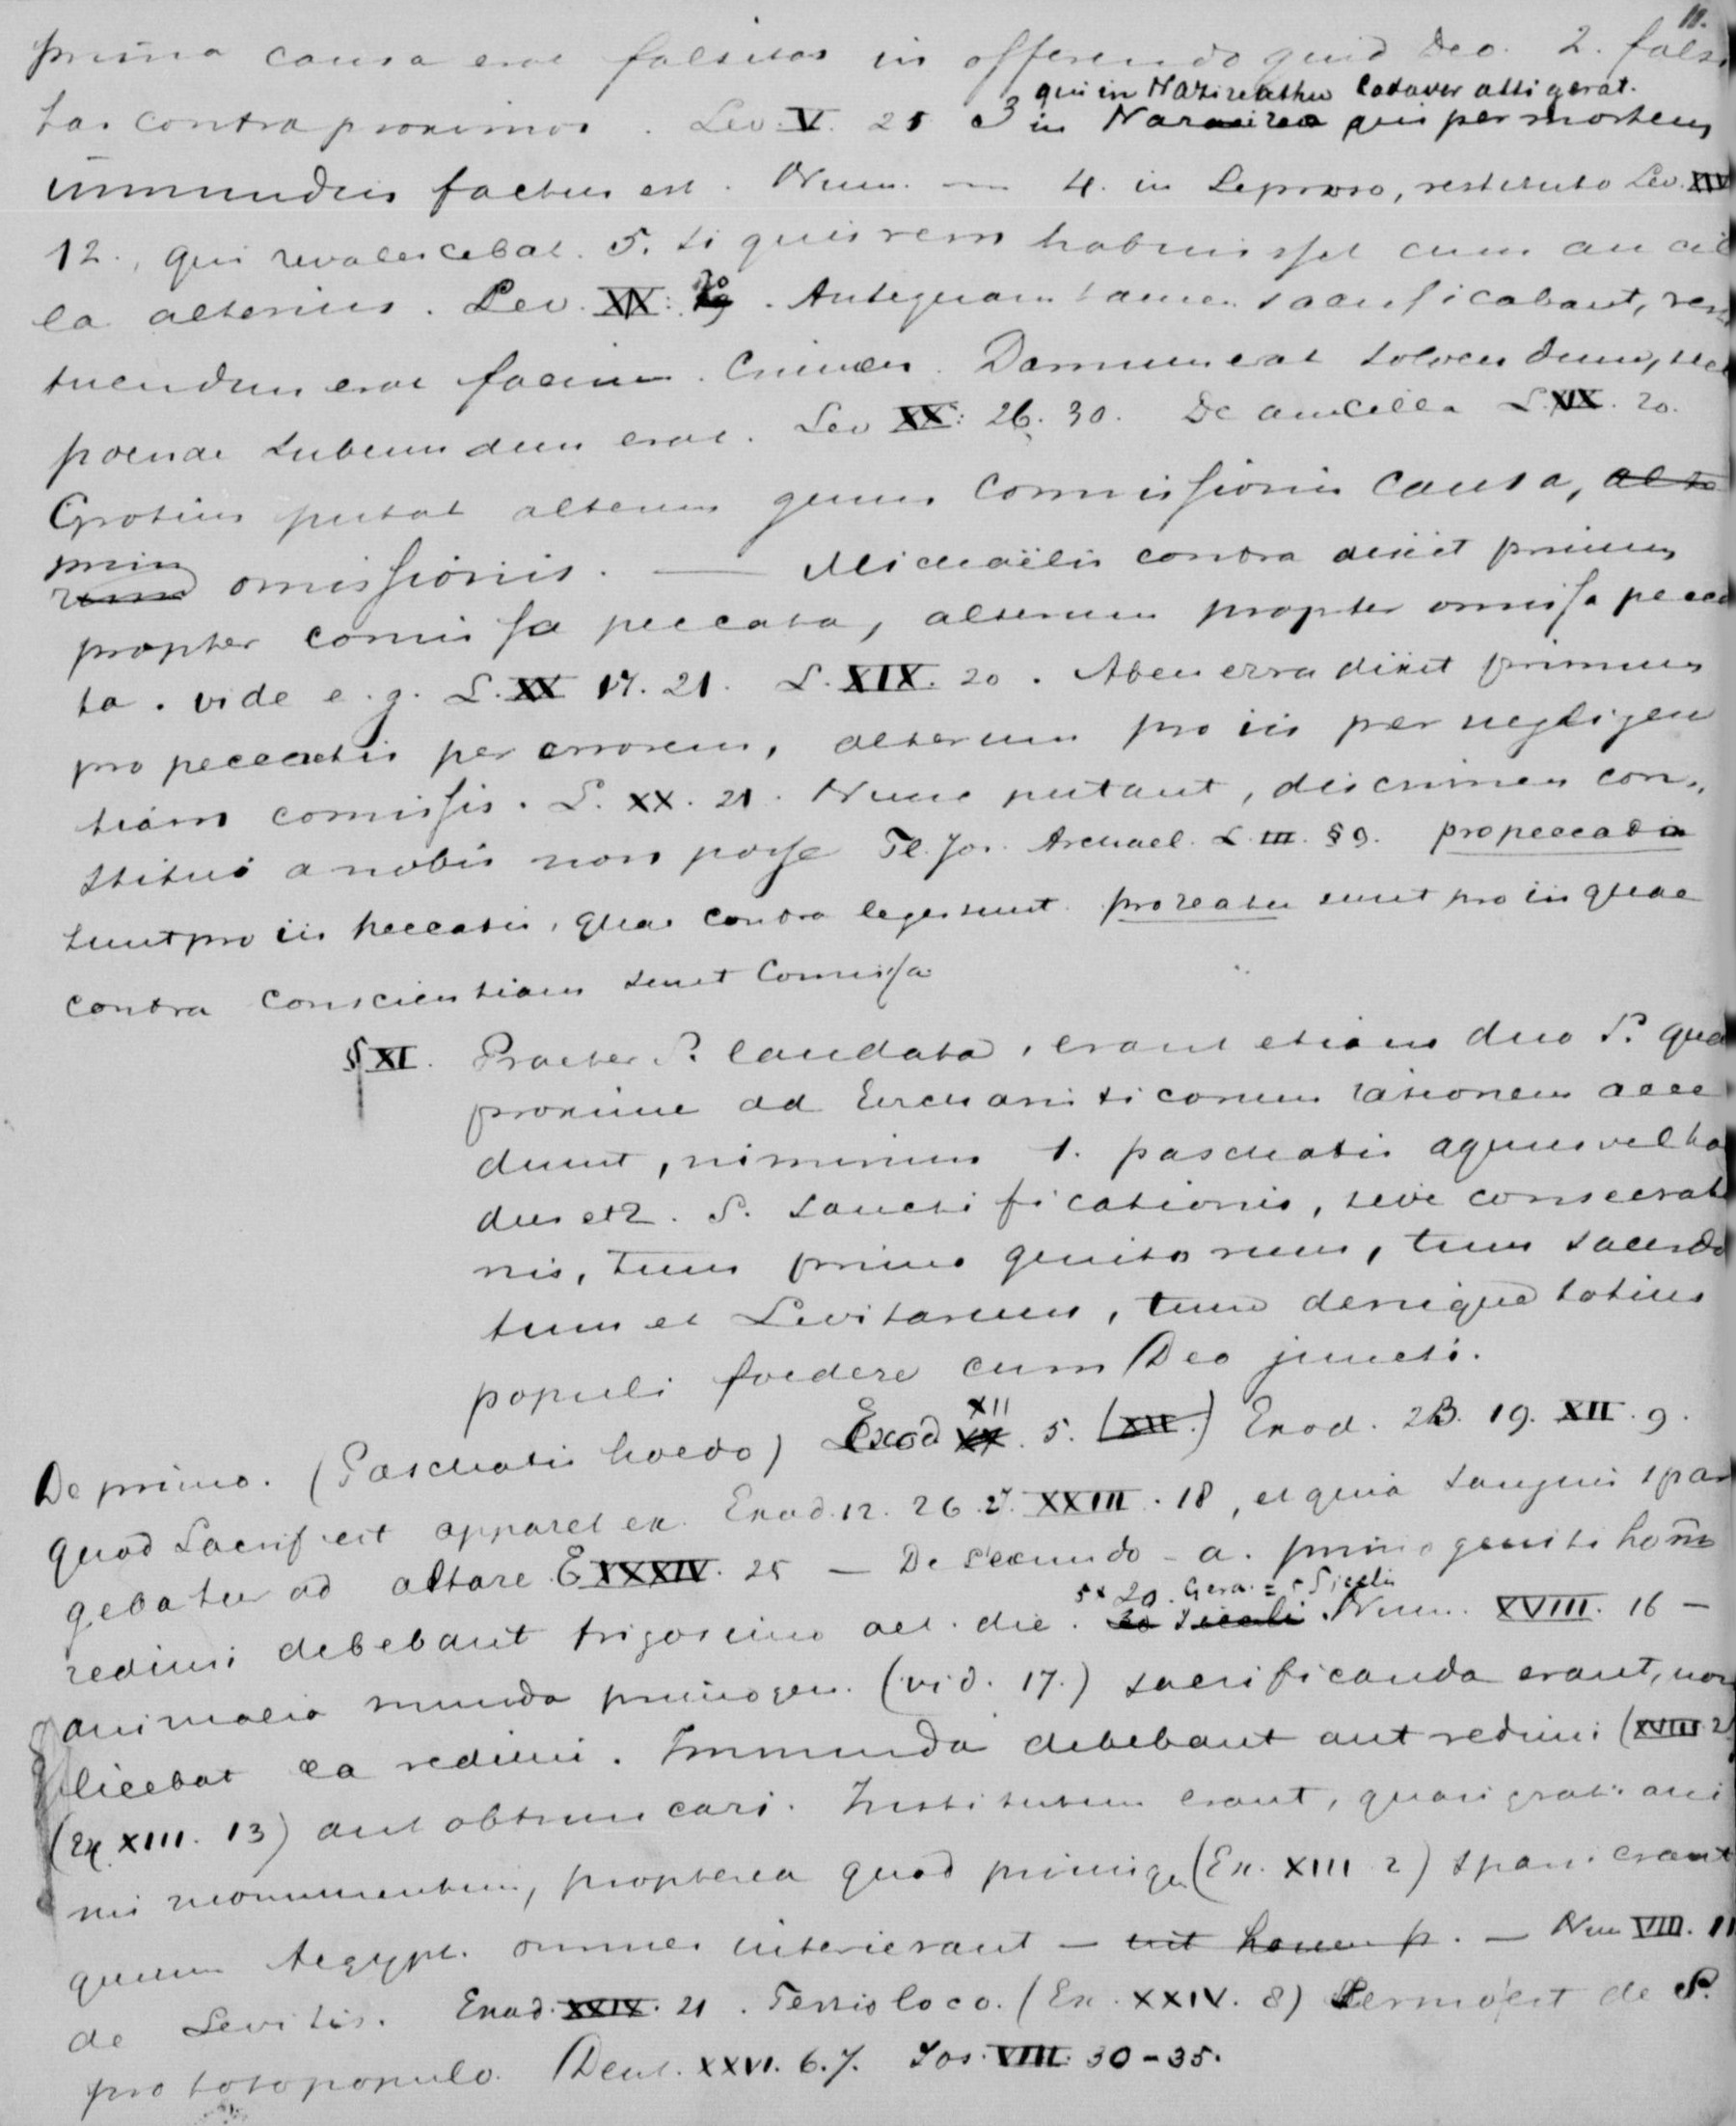 11.
prima causa erat falsitas in offerendo quid Deo. 2. falsi
qui in Nazireathu Cadaver attigerat.
tas contra proximos. Lev. V. 25 3 in qui per mortem
immundus factus est. Num. — 4. in Leproso, restituto Lev. XIV
12., qui revalescebat. 5. si quis rem habuisset cum ancil
la alterius. Lev. XIX: 20. Antequam tamen sacrificabant, resti
tuendum erat facinus. Crimen. Damnum erat solvendum, sed
poenae subeundum erat. Lev XX: 26. 30. De ancilla L. XIX. 20.
Grotius putat alterum genus commissionis causa,
prim omissionis. — Michaëlis contra dixit primum
propter comissa peccata, alterum propter omissa pecca
ta. vide e.g. L. XX 17. 21. L. XIX. 20. Aben ezra dixit primum
pro peccatis per errorem, alterum pro iis per negligen
tiam comissis. L. XX. 21. Nunc putant, discrimen con-
stitui a nobis non posse Fl. Jos. Archael. L. III. § 9. pro peccatis
sunt pro iis peccatis, quae contra leges sunt. pro reatu sunt pro iis quae
contra conscientiam sunt Comissa
§ XI. Praeter S. laudata, erant etiam duo S. quae
proxime ad Eucharisticorum rationem acce
dunt, nimirum 1. paschatis agnus vel hae
dus et 2. S. sanctificationis, sive consecratio
nis, tum primo genitorum, tum sacerdo
tum et Levitarum, tum denique totius
populi foedere cum Deo juncti.
De primo. (Paschatis hoedo) Exod XII. 5. (XII.) Exod. 23. 19. XII. 9.
quod Sacrif est apparet ex. Exod. 12. 26. 27. XXIII. 18, et quia sanguis spar
gebatur ad altare. E XXXIV. 25 — De secundo - a. primogeniti hom
5 x 20. Gera. = 5 Sicelis
redimi debebant trigesimo aet. die. Num. XVIII. 16 —
animalia munda primogen. (vid. 17.) sacrificanda erant, non
licebat ea redimi. Immunda debebant aut redimi (XVIII 2
(Ex. XIII. 13) aut obtruncari. Institutum erant, quasi grati ani
mi monumentum, propterea quod primig. (Ex. XIII 2) sparsi erant
quum Aegypt. omnes interierant — ut homin p. — Num VIII. 11
de Levitis. Exod. XXIX. 21. Tertio loco. (Ex. XXIV. 8) Sermo est de S.
pro toto populo. Deut. XXVI. 6. 7. Jos. VIII. 30-35.